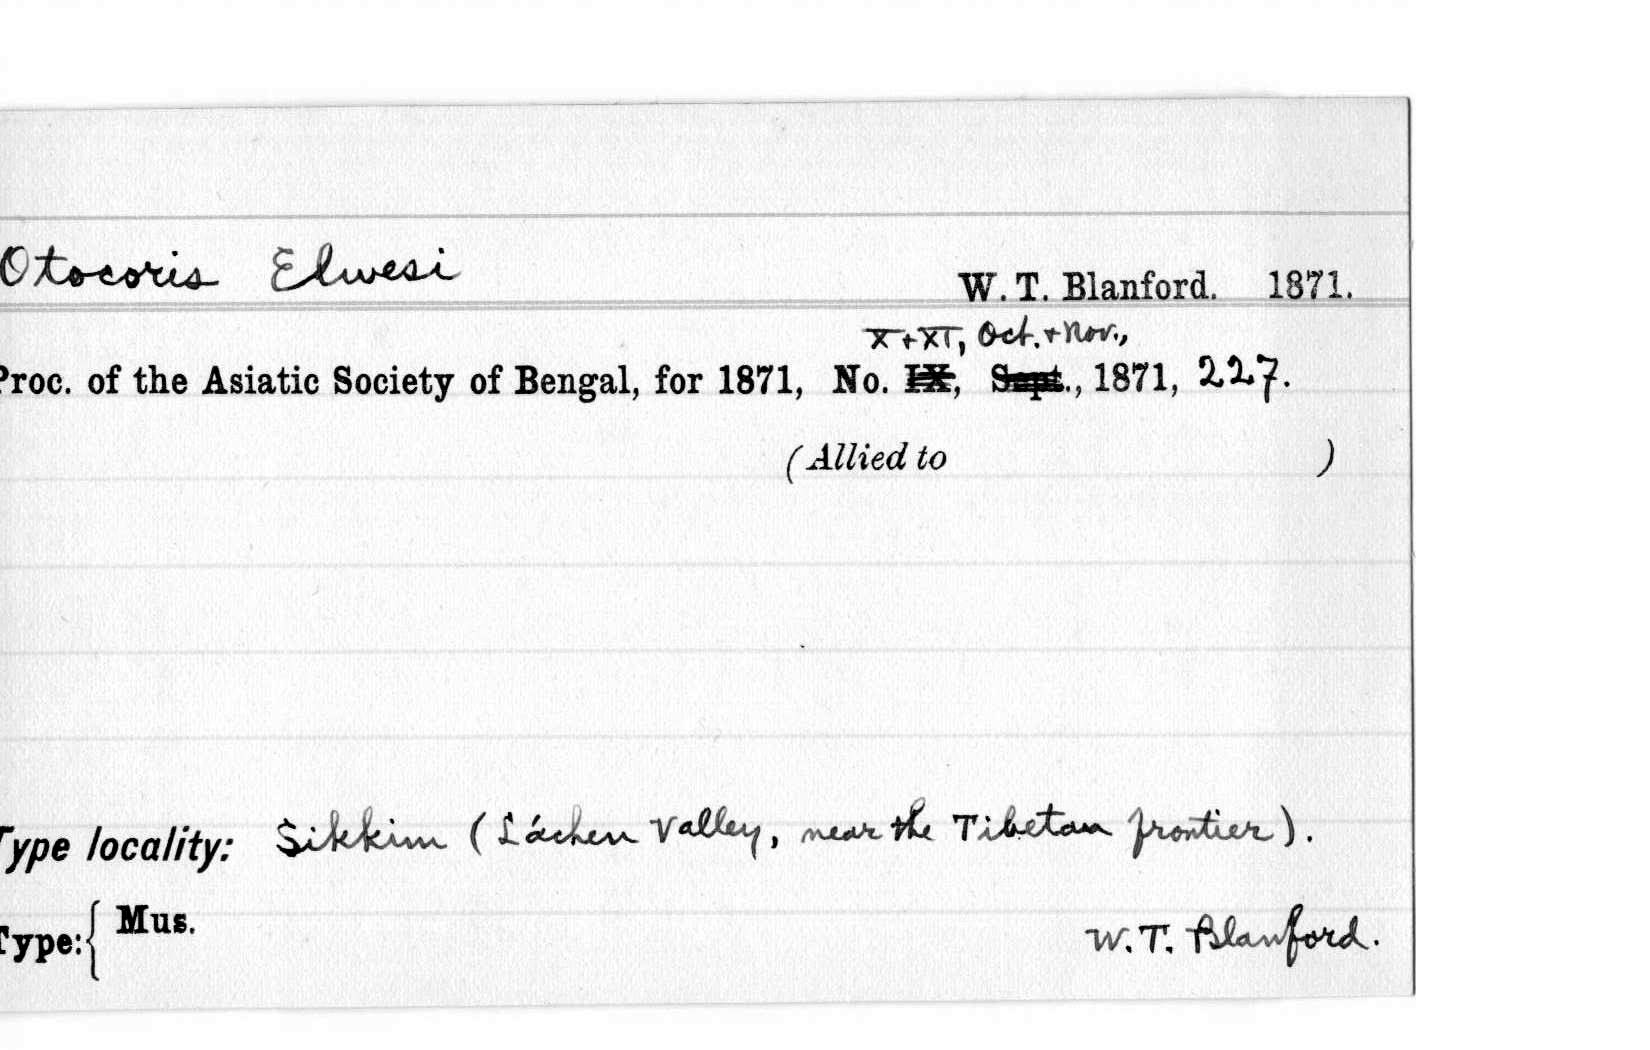 Otocoris Elwesi
W. T. Blanford. 1871.
X + XI, Oct. + Nov.,
Proc. of the Asiatic Society of Bengal, for 1871, No. IX, Sept., 1871, 227.
(Allied to )
Type locality: Sikkim (Láchen Valley, near the Tibetan frontier).
Type: { Mus.
W. T. Blanford.